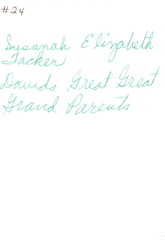 #24
Susanah Elizabeth
Tacker
Davids Great Great
Grand Parents